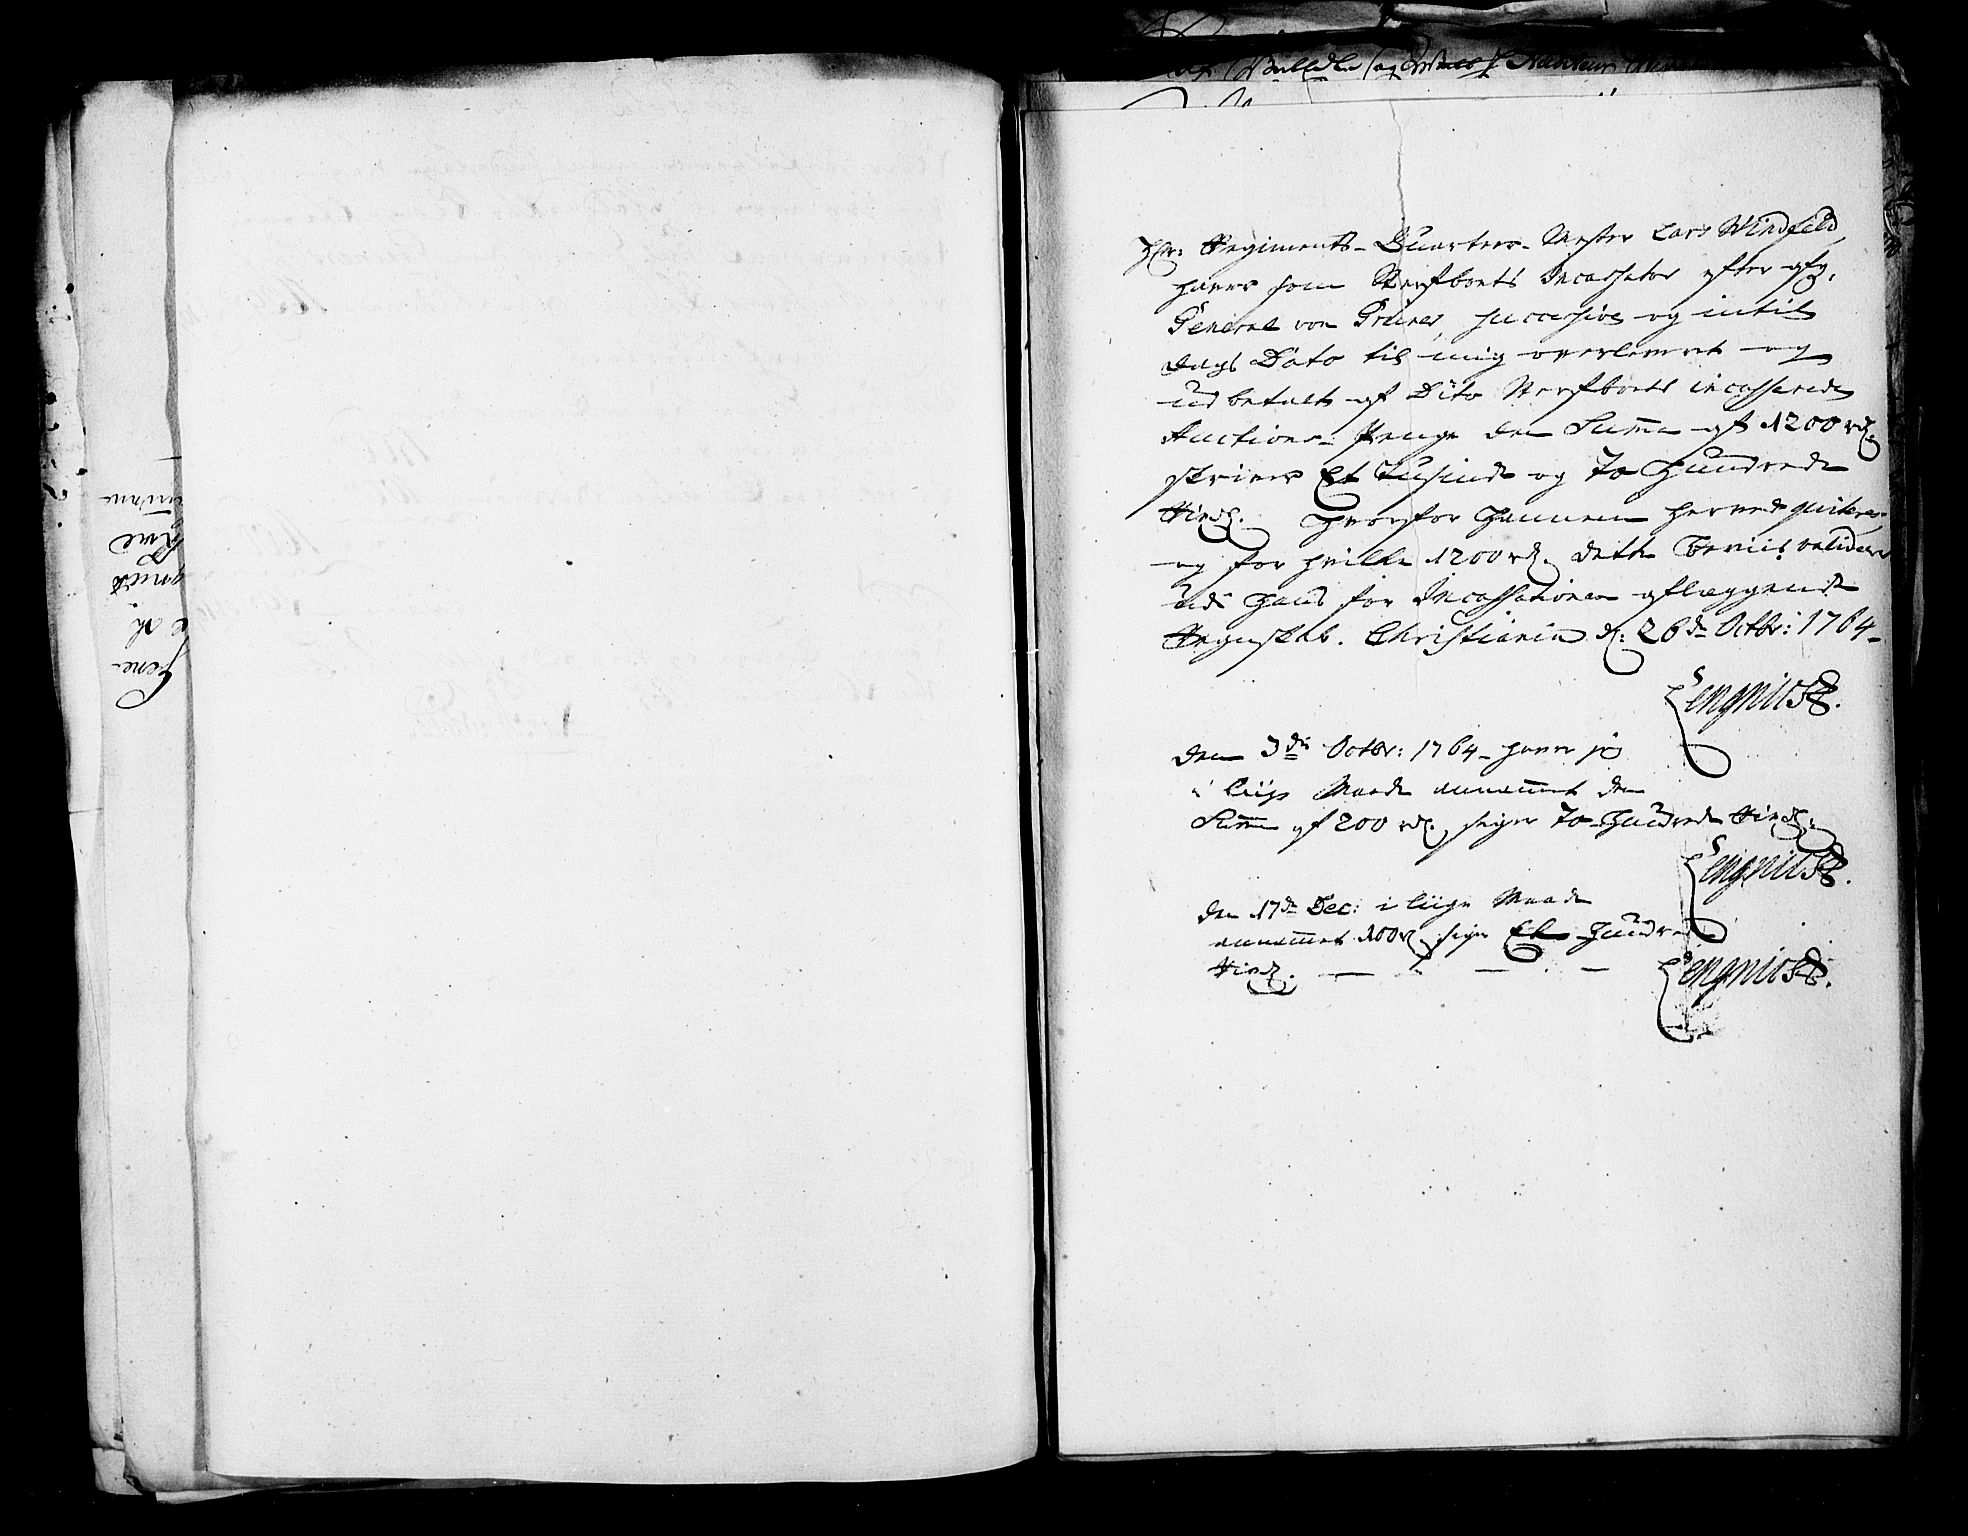 Hr: Regiments-Quarteer-Mester Lars Windfeld,
haver som Sterfboets Incassator efter afg.
General von Grüner, successive og intil
Dags Dato til mig overleveret og
udbetalt af Dito Sterfboets incasserede
Auctions-Penge den Sum̄a af 1200 rd.
skriver Et Tusinde og To Hundrede
Rixd. Hvorfor hannem herved quiteres,
og for hvilke 1200 rd. dette Beviis validerer
udi hans for Incassationen aflæggende
Regnskab. Christiania d: 26de Octbr: 1764-
Lengnick.
Den 3die Octbr: 1764- haver jeg
i liige Maade annam̄et den
Sum̄a af 200 rd. siger To Hundrede Rixd.
Lengnick.
Den 17de Dec: i liige Maade
annam̄et 100 rd. siger Et Hundrede
Rixd. — — —
Lengnick.